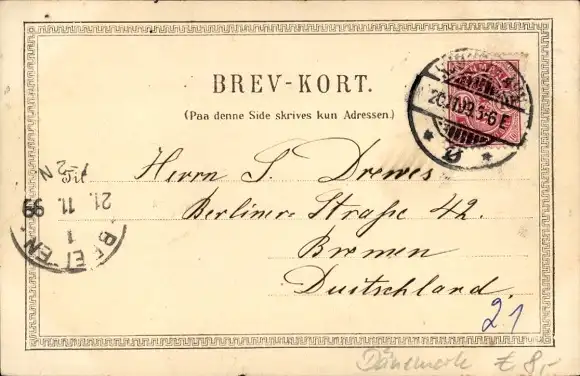 BREV-KORT.
(Paa denne Side skrives kun Adressen.)
20.11.99.5-6E
Herrn S. Drewes
Berliner Straße 42.
Bremen
Duitschland.
21. 11. 99
1
21
Dänemark € 8,-